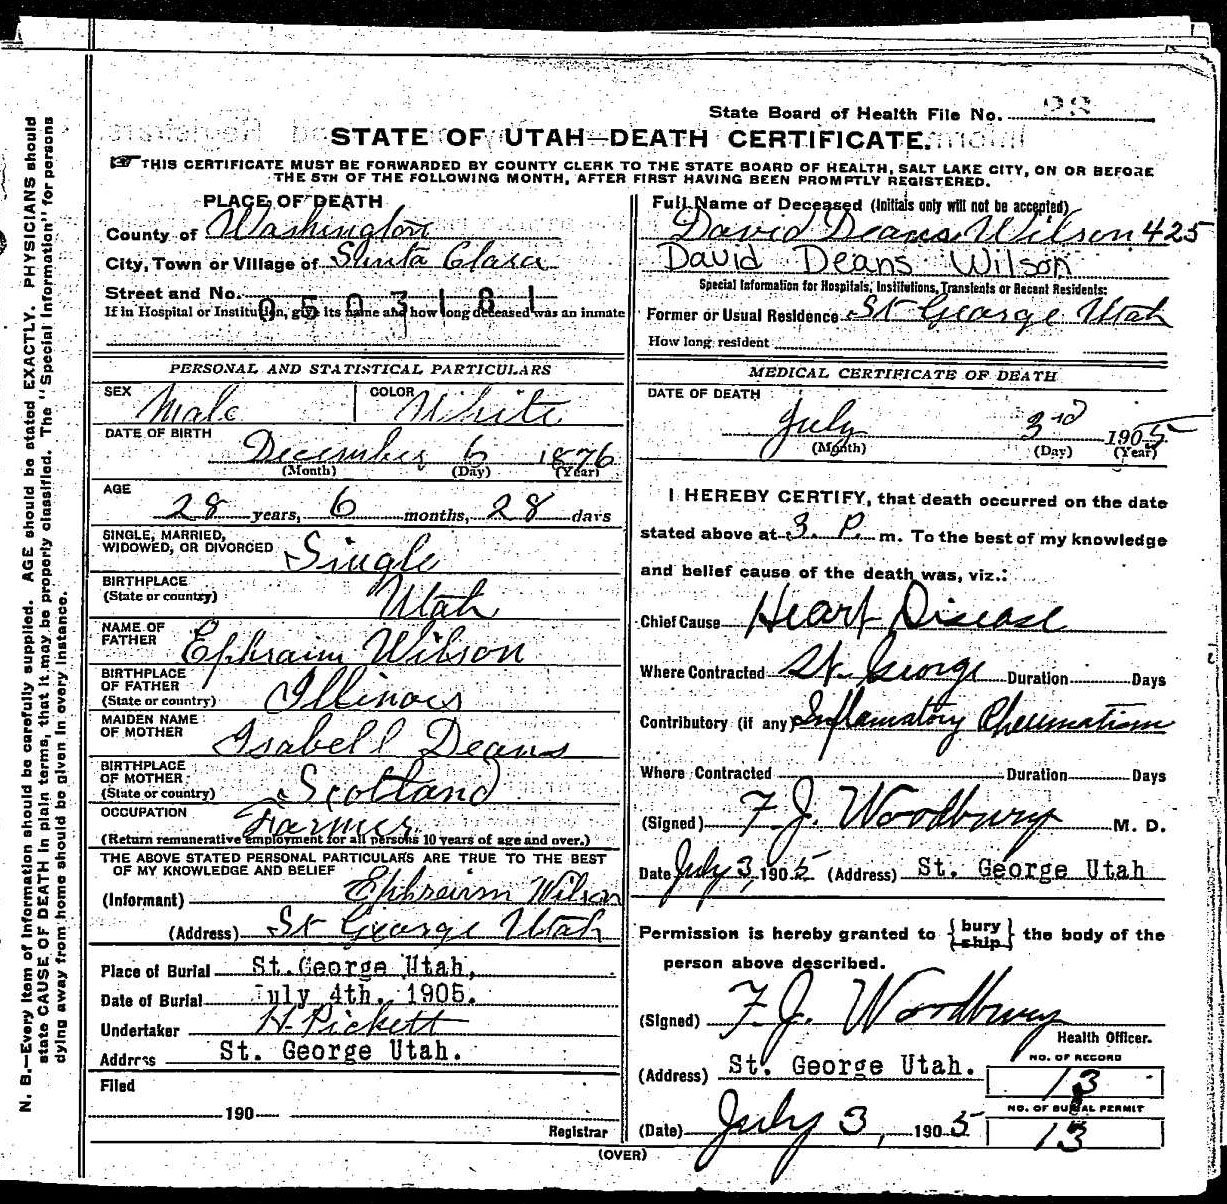 State Board of Health File No. 22
STATE OF UTAH—DEATH CERTIFICATE.
THIS CERTIFICATE MUST BE FORWARDED BY COUNTY CLERK TO THE STATE BOARD OF HEALTH, SALT LAKE CITY, ON OR BEFORE
THE 5TH OF THE FOLLOWING MONTH, AFTER FIRST HAVING BEEN PROMPTLY REGISTERED.
PLACE OF DEATH
County of Washington
City, Town or Village of Santa Clara
Street and No.
0503181
If in Hospital or Institution, give its name and how long deceased was an inmate
PERSONAL AND STATISTICAL PARTICULARS
SEX Male COLOR White
DATE OF BIRTH
December 6 1876
(Month) (Day) (Year)
AGE
28 years, 6 months, 28 days
SINGLE, MARRIED,
WIDOWED, OR DIVORCED Single
BIRTHPLACE
(State or country) Utah
NAME OF
FATHER Ephraim Wilson
BIRTHPLACE
OF FATHER
(State or country) Illinois
MAIDEN NAME
OF MOTHER Isabell Deans
BIRTHPLACE
OF MOTHER
(State or country) Scotland
OCCUPATION Farmer
(Return remunerative employment for all persons 10 years of age and over.)
THE ABOVE STATED PERSONAL PARTICULARS ARE TRUE TO THE BEST
OF MY KNOWLEDGE AND BELIEF
(Informant) Ephraim Wilson
(Address) St George Utah
Place of Burial St. George Utah,
Date of Burial July 4th, 1905.
Undertaker H. Pickett
Address St. George Utah.
Filed
190
Registrar
Full Name of Deceased (Initials only will not be accepted)
David Deans Wilson 425
David Deans Wilson
Special Information for Hospitals, Institutions, Transients or Recent Residents:
Former or Usual Residence St George Utah
How long resident
MEDICAL CERTIFICATE OF DEATH
DATE OF DEATH
July 3rd 1905
(Month) (Day) (Year)
I HEREBY CERTIFY, that death occurred on the date
stated above at 3. P. m. To the best of my knowledge
and belief cause of the death was, viz.:
Chief Cause Heart Disease
Where Contracted St. George Duration Days
Contributory (if any) Inflamatory Rheumatism
Where Contracted Duration Days
(Signed) F. J. Woodbury M. D.
Date July 3, 1905 (Address) St. George Utah
Permission is hereby granted to {bury ship} the body of the
person above described.
(Signed) F. J. Woodbury
Health Officer.
(Address) St. George Utah.
NO. OF RECORD
13
NO. OF BURIAL PERMIT
13
(Date) July 3, 1905
(OVER)
N. B.—Every item of information should be carefully supplied. AGE should be stated EXACTLY. PHYSICIANS should
state CAUSE OF DEATH in plain terms, that it may be properly classified. The "Special Information" for persons
dying away from home should be given in every instance.